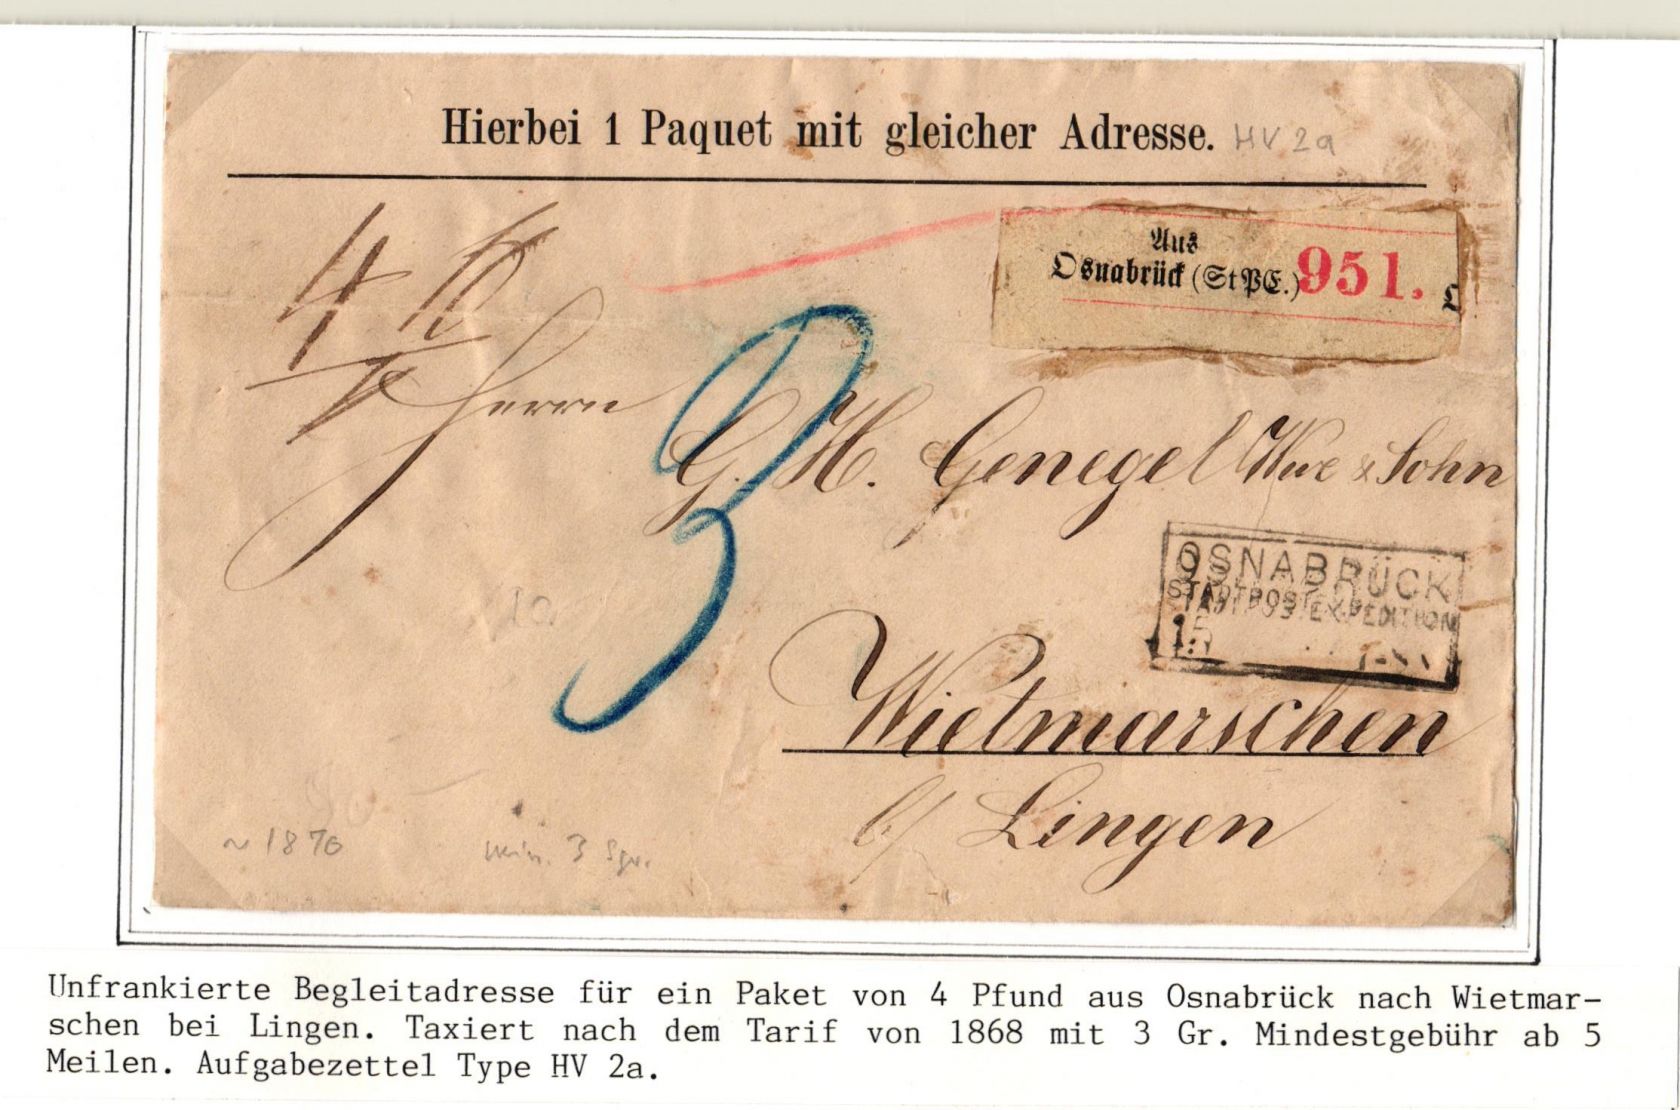 Hierbei 1 Paquet mit gleicher Adresse. HV 2a
Aus
Osnabrück (StPE.) 951.
4
Herrn
3
G. H. Genegel Wwe & Sohn
OSNABRÜCK
STADTPOST-EXPEDITION
15
10
Wietmarschen
b/ Lingen
~ 1870
min. 3 Sgr.
Unfrankierte Begleitadresse für ein Paket von 4 Pfund aus Osnabrück nach Wietmar-
schen bei Lingen. Taxiert nach dem Tarif von 1868 mit 3 Gr. Mindestgebühr ab 5
Meilen. Aufgabezettel Type HV 2a.